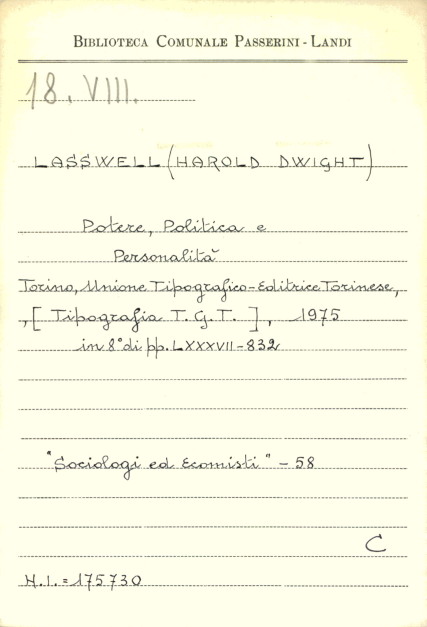 BIBLIOTECA COMUNALE PASSERINI - LANDI
18. VIII.
LASSWELL (HAROLD DWIGHT)
Potere, Politica e
Personalità
Torino, Unione Tipografico-Editrice Torinese,
,[ Tipografia T. G. T. ], 1975
in 8° di pp. LXXXVII-832
"Sociologi ed Ecomisti" - 58
C
N.I. = 175730